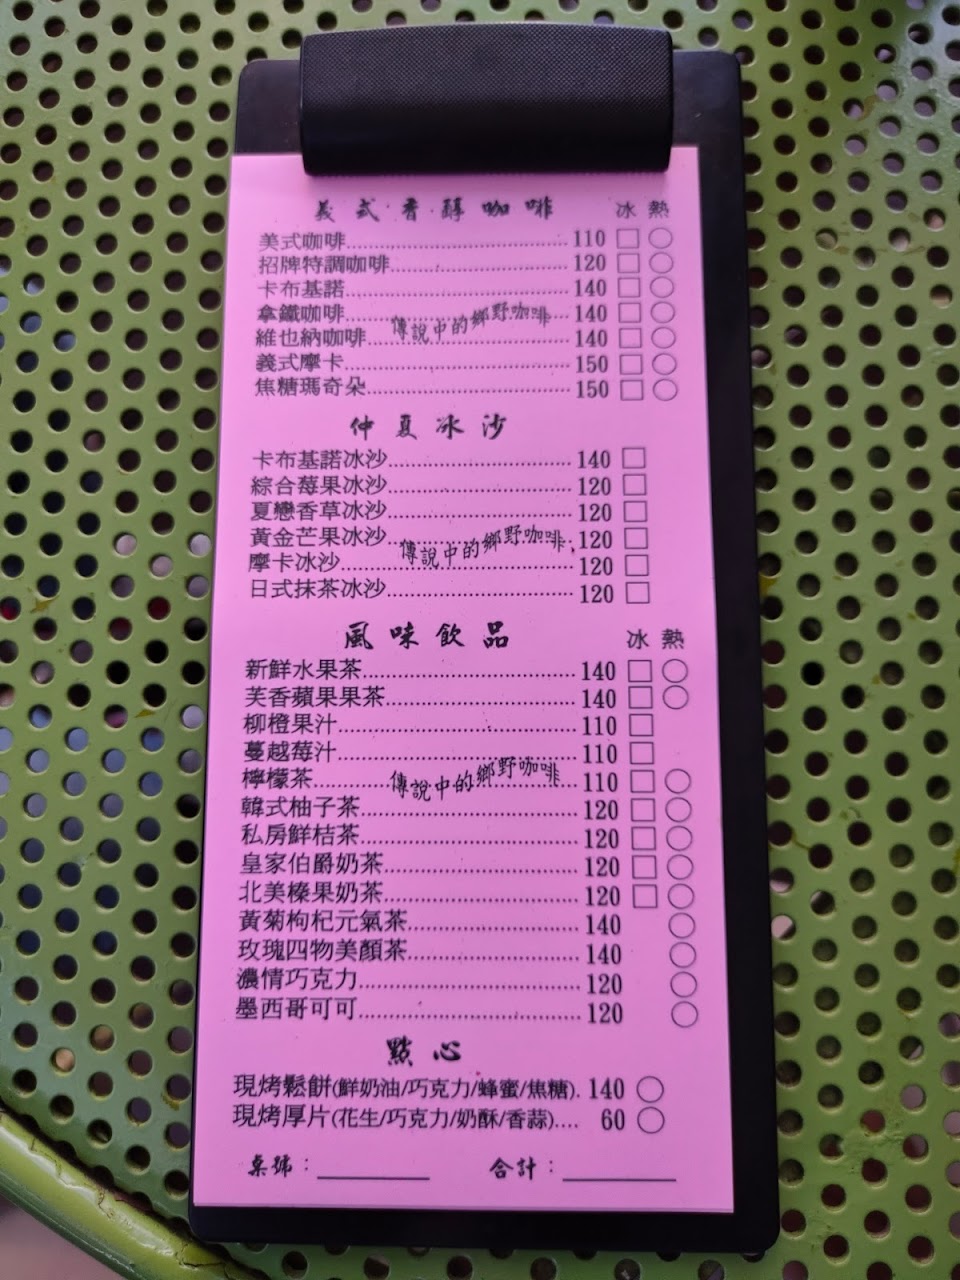 義式香醇咖啡 冰 熱
美式咖啡 110 □ ○
招牌特調咖啡 120 □ ○
卡布基諾 140 □ ○
拿鐵咖啡 140 □ ○
傳說中的鄉野咖啡
維也納咖啡 140 □ ○
義式摩卡 150 □ ○
焦糖瑪奇朵 150 □ ○
仲夏冰沙
卡布基諾冰沙 140 □
綜合莓果冰沙 120 □
夏戀香草冰沙 120 □
黃金芒果冰沙 120 □
傳說中的鄉野咖啡
摩卡冰沙 120 □
日式抹茶冰沙 120 □
風味飲品 冰 熱
新鮮水果茶 140 □ ○
芙香蘋果果茶 140 □ ○
柳橙果汁 110 □
蔓越莓汁 110 □
檸檬茶 110 □ ○
傳說中的鄉野咖啡
韓式柚子茶 120 □ ○
私房鮮桔茶 120 □ ○
皇家伯爵奶茶 120 □ ○
北美榛果奶茶 120 □ ○
黃菊枸杞元氣茶 140 ○
玫瑰四物美顏茶 140 ○
濃情巧克力 120 ○
墨西哥可可 120 ○
點心
現烤鬆餅(鮮奶油/巧克力/蜂蜜/焦糖). 140 ○
現烤厚片(花生/巧克力/奶酥/香蒜).... 60 ○
桌號：________ 合計：________